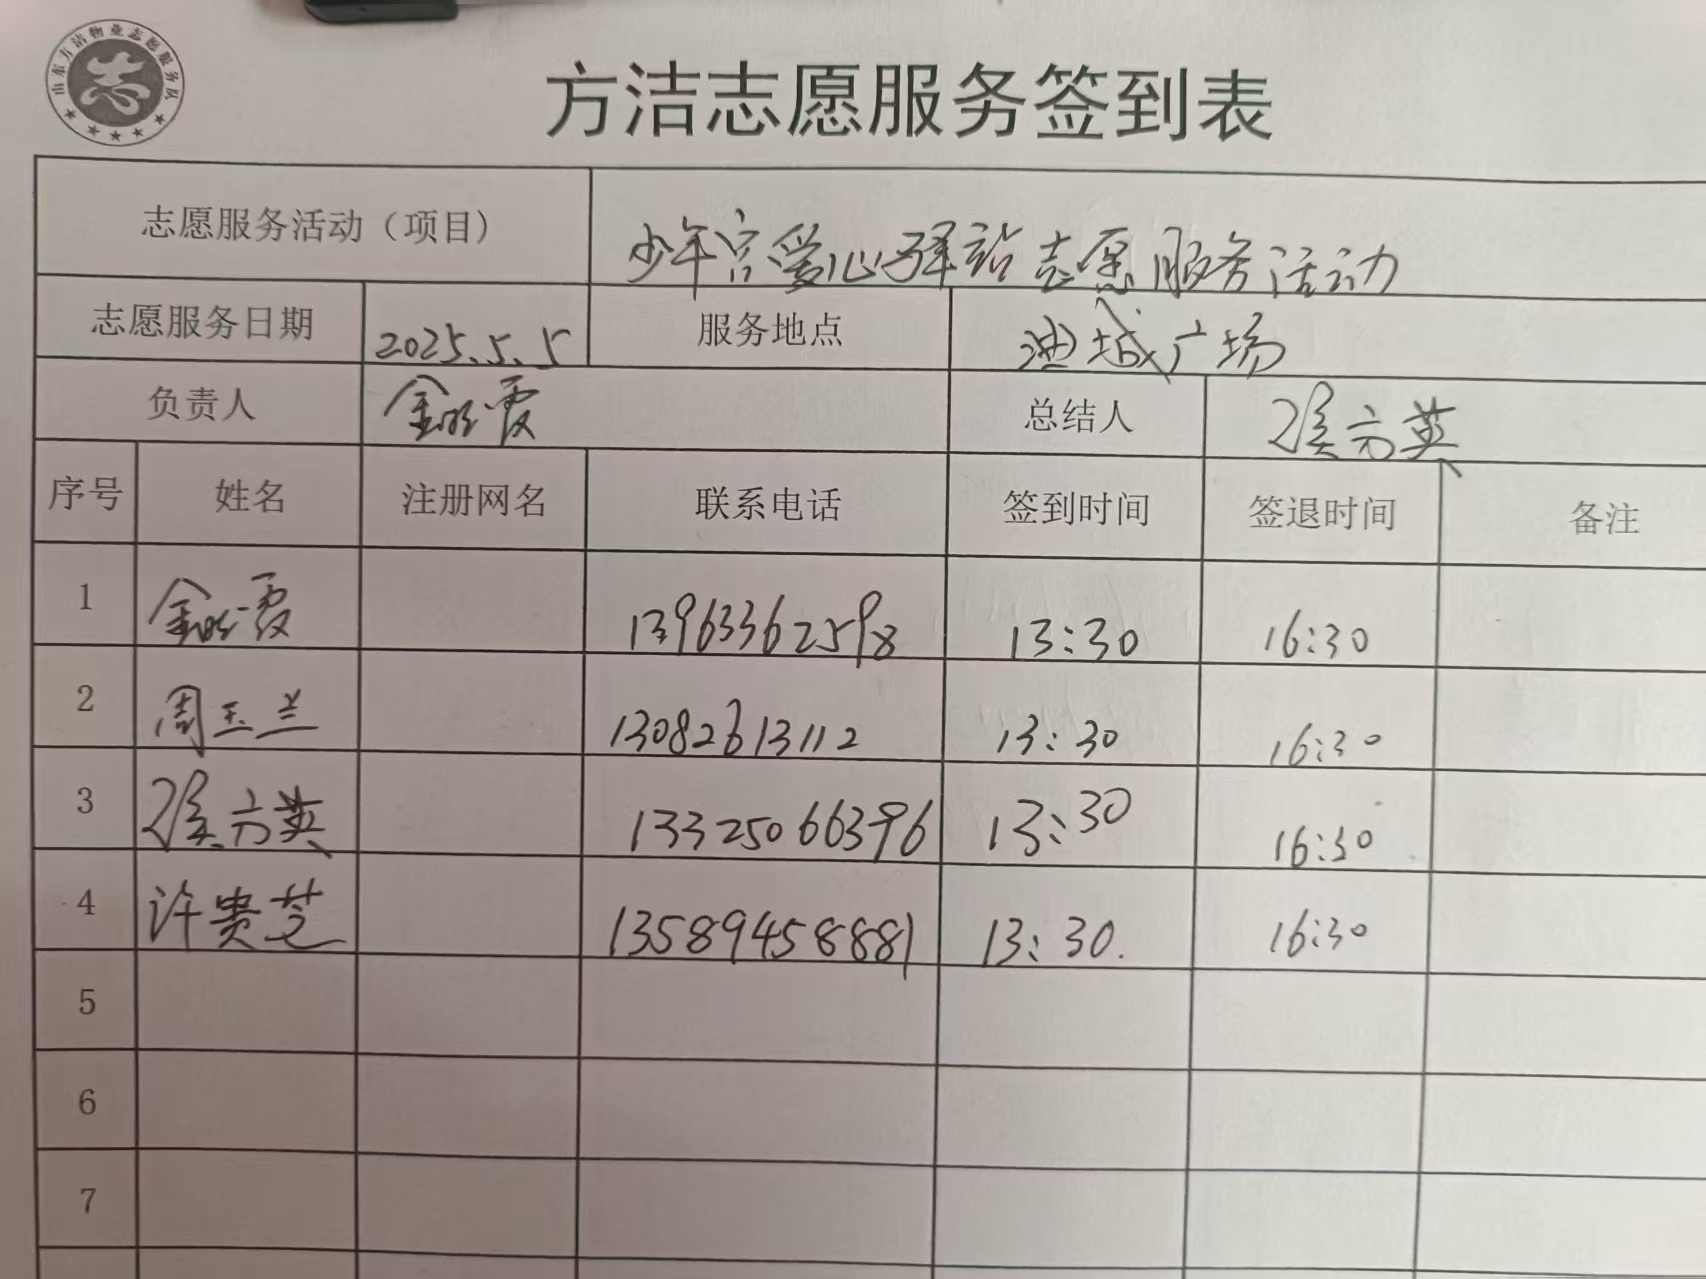 山东方洁物业志愿服务队
志
方洁志愿服务签到表
志愿服务活动（项目） 少年宫爱心驿站志愿服务活动
志愿服务日期 2025.5.5 服务地点 渔城广场
负责人 金晓霞 总结人 侯方英
序号 姓名 注册网名 联系电话 签到时间 签退时间 备注
1 金晓霞 13963362598 13:30 16:30
2 周玉兰 13082613112 13:30 16:30
3 侯方英 13325066396 13:30 16:30
4 许贵芝 13589458881 13:30. 16:30
5
6
7